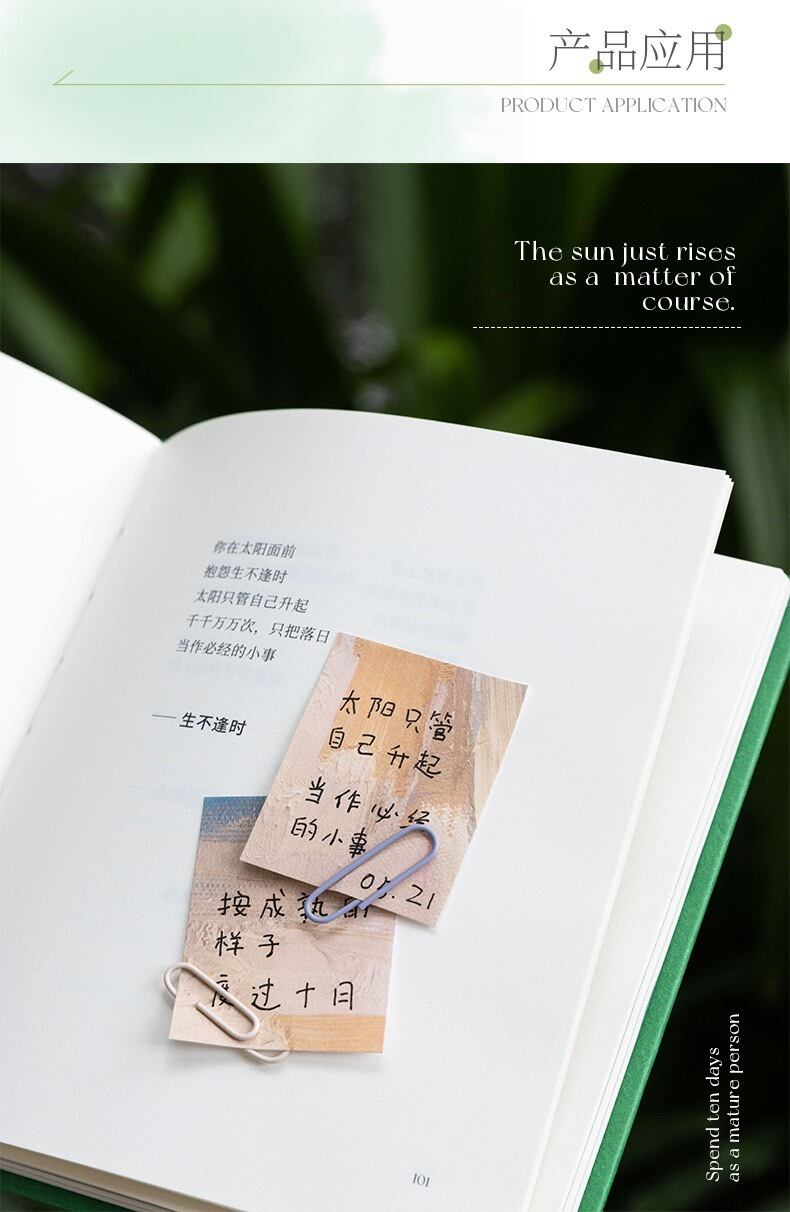 产品应用
PRODUCT APPLICATION
The sun just rises
as a matter of
course.
你在太阳面前
抱怨生不逢时
太阳只管自己升起
千千万万次，只把落日
当作必经的小事
— 生不逢时
太阳只管
自己升起
当作必经
的小事
05.21
按成熟的
样子
度过十日
101
Spend ten days
as a mature person